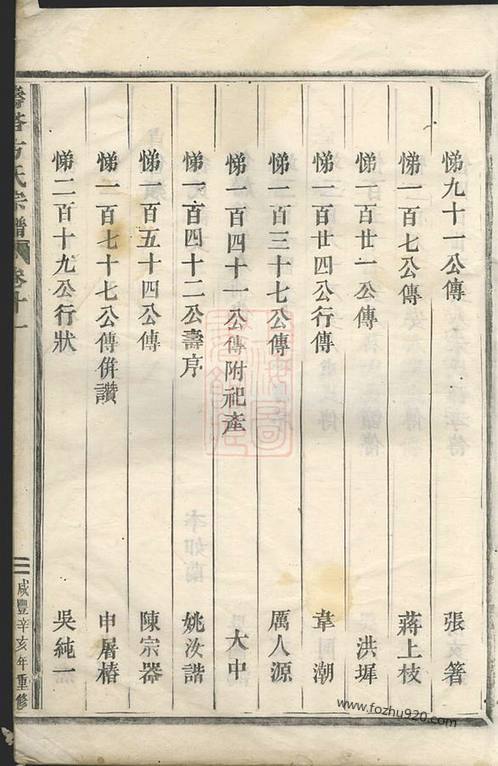 悌九十一公傳 張箸
悌一百七公傳 蔣上枝
悌一百廿一公傳 洪墀
悌一百廿四公行傳 韋潮
悌一百三十七公傳 厲人源
悌一百四十一公傳附祀產 大中
悌一百四十二公壽序 姚汝諧
悌一百五十四公傳 陳宗器
悌一百七十七公傳併讚 申屠椿
悌二百十九公行狀 吳純一
方氏宗譜 卷十一 二 咸豐辛亥年重修
www.fozhu920.com